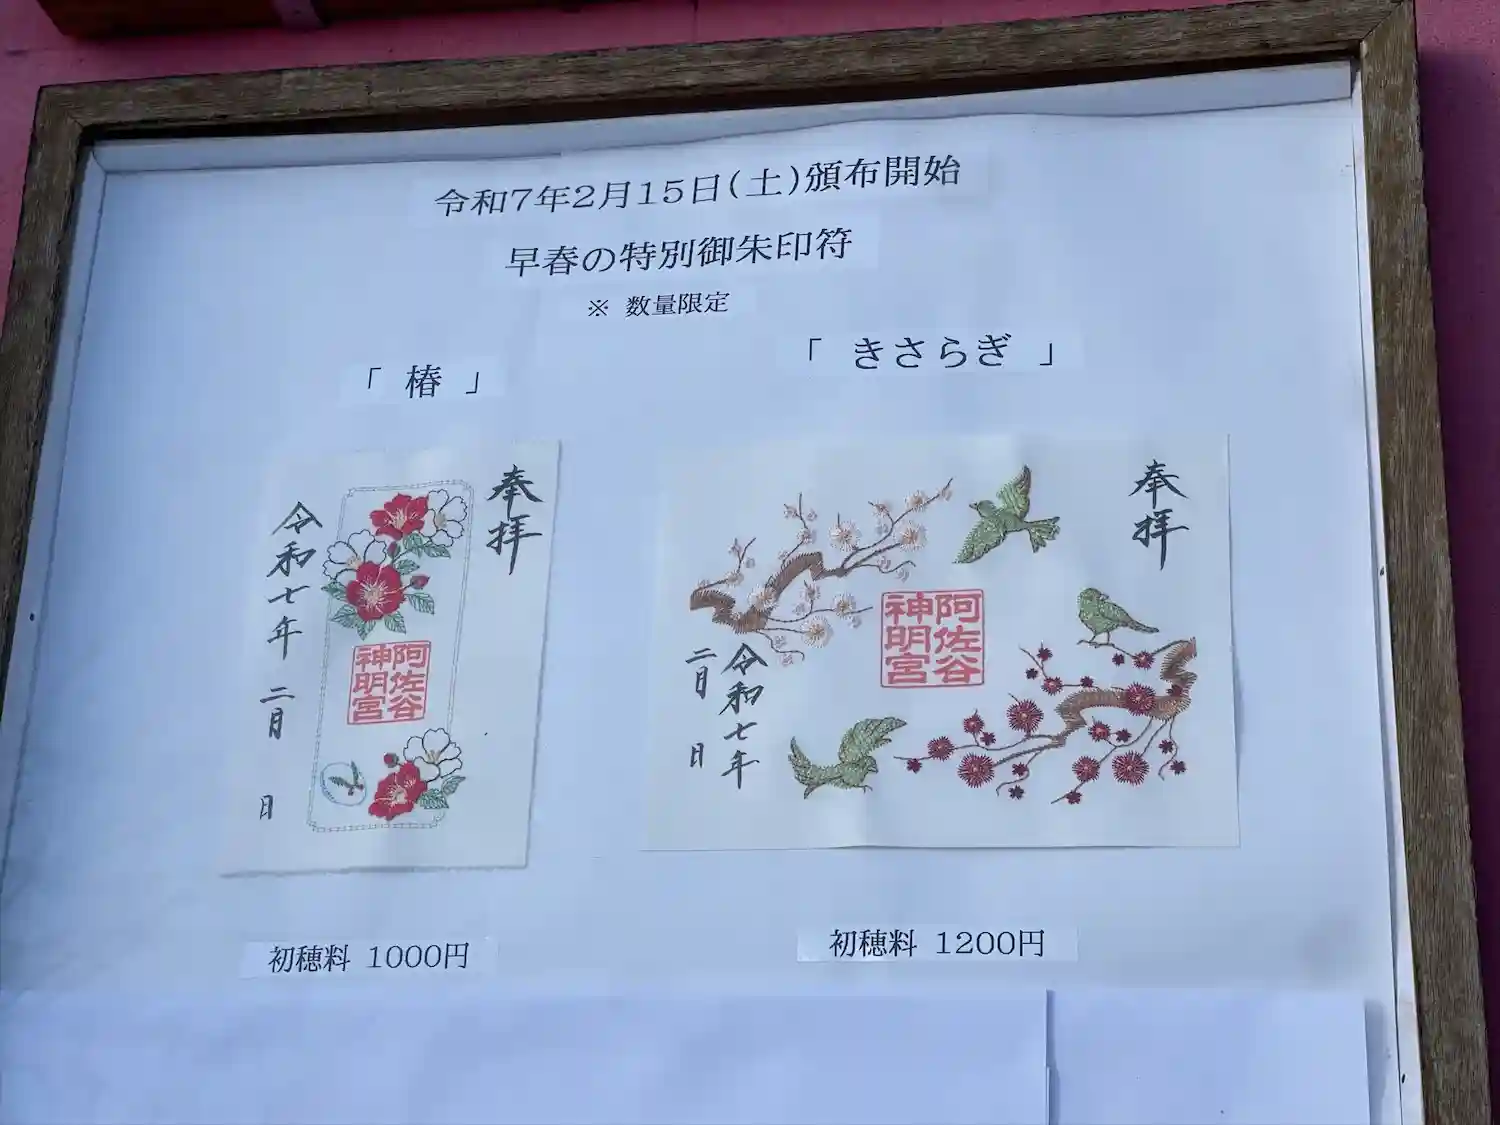 令和7年2月15日(土)頒布開始
早春の特別御朱印符
※ 数量限定
「 椿 」
「 きさらぎ 」
奉拝
阿佐谷
神明宮
令和七年 二月 日
奉拝
阿佐谷
神明宮
令和七年
二月 日
初穂料 1000円
初穂料 1200円